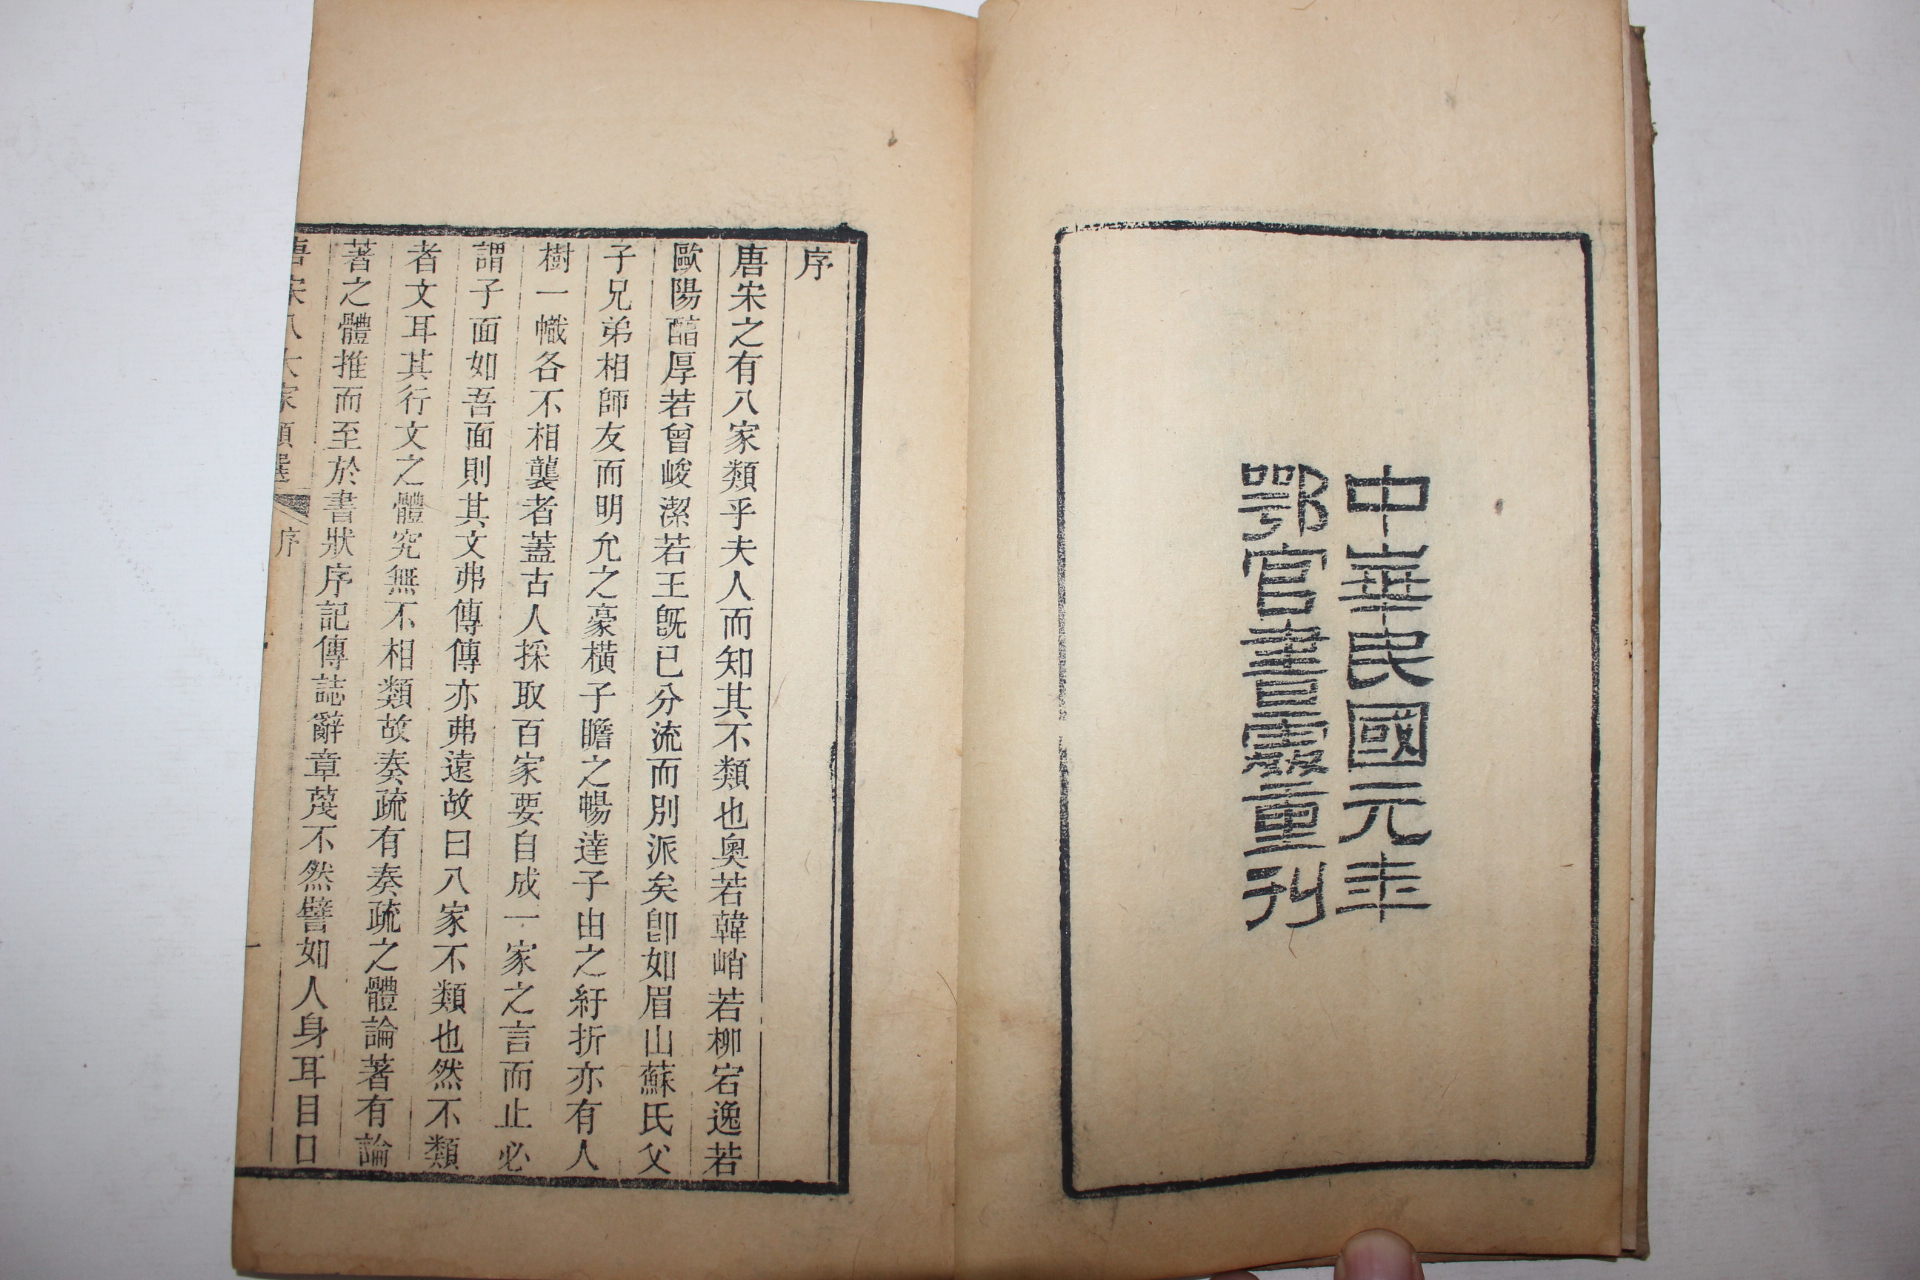 中華民國元年
鄂官書處重刊
序
唐宋之有八家類乎夫人而知其不類也奧若韓峭若柳宕逸若
歐陽醕厚若曾峻潔若王旣已分流而別派矣卽如眉山蘇氏父
子兄弟相師友而明允之豪橫子瞻之暢達子由之紆折亦有人
樹一幟各不相襲者蓋古人採取百家要自成一家之言而止必
謂子面如吾面則其文弗傳傳亦弗遠故曰八家不類也然不類
者文耳其行文之體究無不相類故奏疏有奏疏之體論著有論
著之體推而至於書狀序記傳誌辭章蔑不然譬如人身耳目口
唐宋八大家類選 序 一